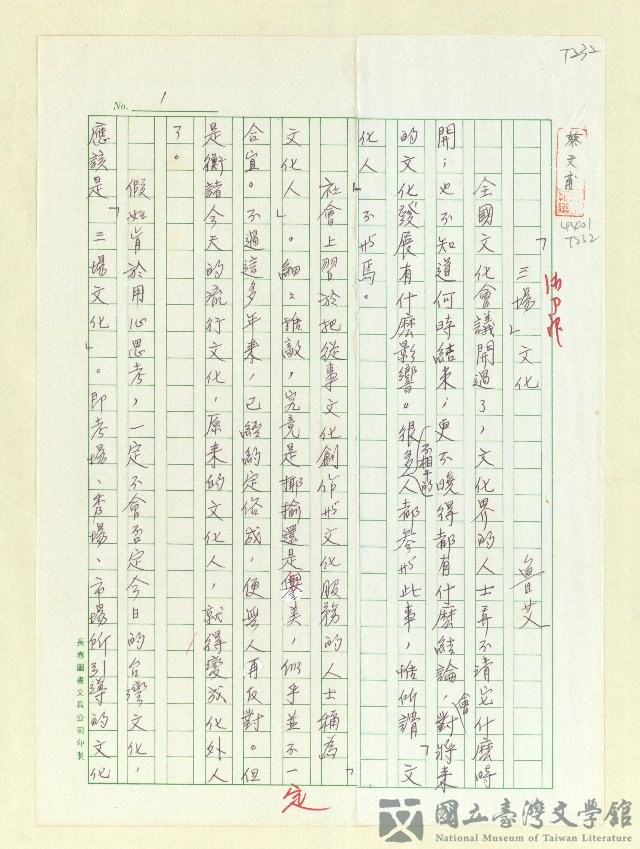 T232
No. 1
蔡文甫
4401
T232
「三場」文化
魯艾
全國文化會議開過了，文化界的人士弄不清它什麼時
開；也不知道何時結束；更不曉得都有什麼結論，會對將來
的文化發展有什麼影響。很多不相干的人都參與此事，惟所謂「文
化人」不與焉。
社會上習於把從事文化創作與文化服務的人士稱為「
文化人」。細細推敲，究竟是揶揄還是譽美，似乎並不一定
合宜。不過這多年來，已經約定俗成，便無人再反對。但
是衡諸今天的流行文化，原來的文化人，就得變成化外人
了。
假如肯於用心思考，一定不會否定今日的台灣文化，
應該是「三場文化」。即考場、秀場、市場所引導的文化
長春圖書文具公司印製
國立臺灣文學館
National Museum of Taiwan Literature